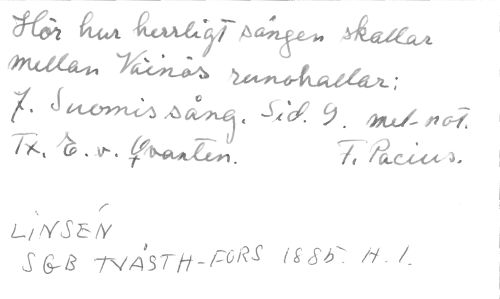 Hör hur herrligt sången skallar
mellan Väinös runohallar:
7. Suomis sång. Sid. 9. mel-not.
Tx. E. v. Qvanten. F. Pacius.
LINSÉN
SGB TVÅSTH-FORS 1885. H. 1.